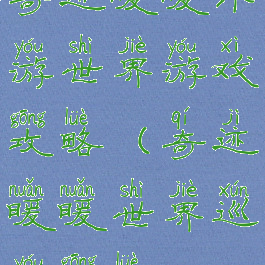 yóu shì jiè yóu xì
游世界游戏
gōng lüè qí jì
攻略(奇迹
nuǎn nuǎn shì jiè xún
暖暖世界巡
yóu gōng lüè